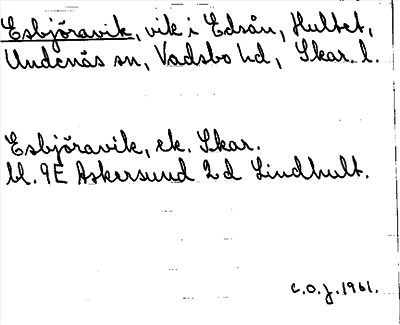 Esbjöravik, vik i Edsån, Hultet,
Undenäs sn, Vadsbo hd, Skar. l.
Esbjöravik, ek. Skar.
bl. 9E Askersund 2d Lindhult.
C.O.J. 1961.